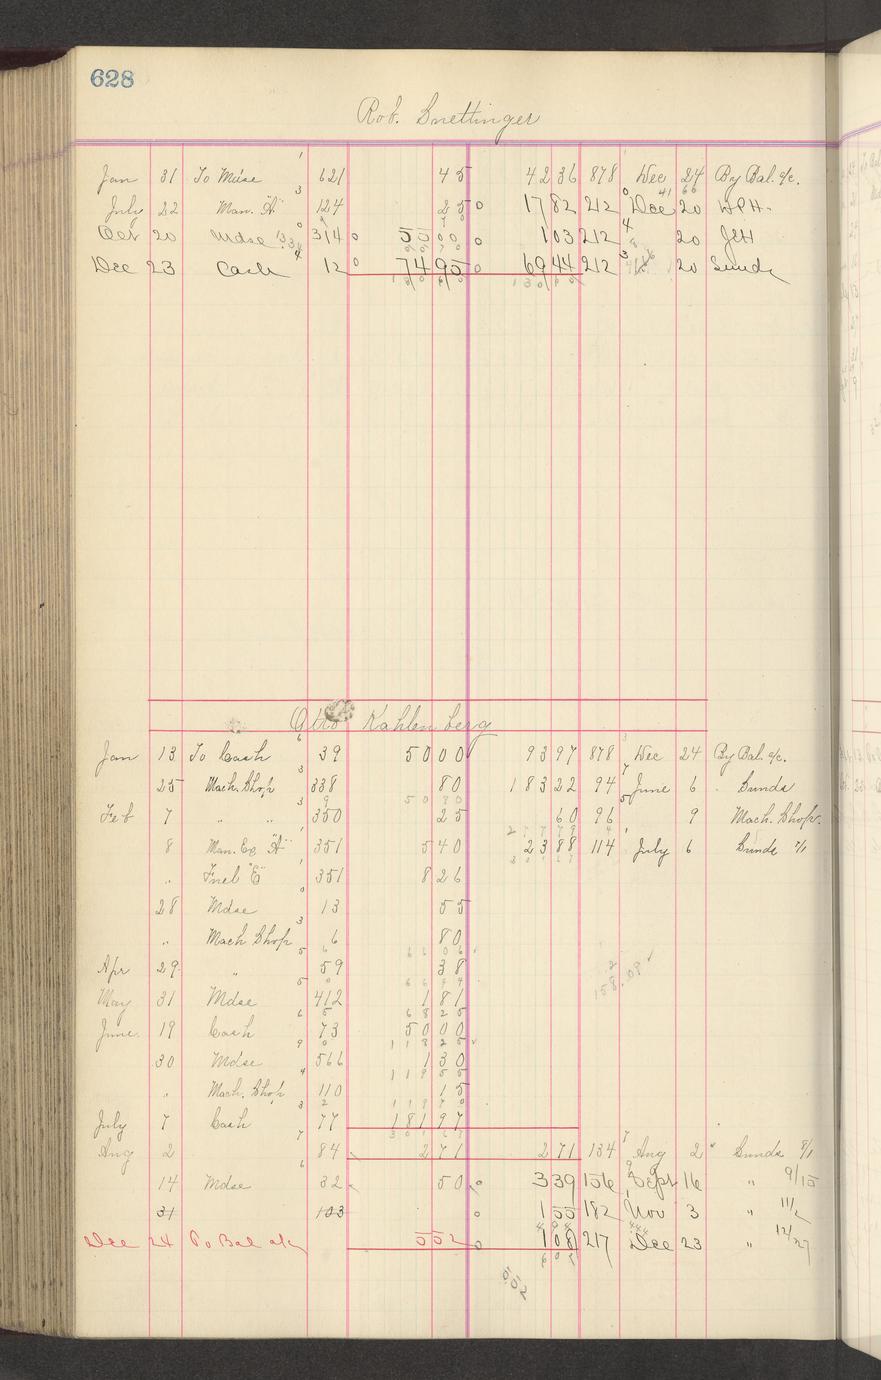 628
Rob. Snettinger
Jan 31 To Mdse 621 45 42 36 878 Dec 24 By Bal. a/c.
July 22 Man. "A" 124 25 17 82 212 Dec 20 WPH-
Oct 20 Mdse 314 55 00 1 03 212 20 JCH
Dec 23 Cash 12 74 95 69 44 212 20 Sunds
Otto Kahlenberg
Jan 13 To Cash 39 50 00 93 97 878 Dec 24 By Bal. a/c.
25 Mach. Shop 338 80 183 22 94 June 6 Sunds
Feb 7 " " 350 25 60 96 9 Mach. Shop.
8 Man. Ex "A" 351 5 40 23 88 114 July 6 Sunds 7/1
" Fuel "E" 351 8 26
28 Mdse 13 55
" Mach Shop 6 80
Apr 29 " 59 38
May 31 Mdse 412 1 81
June 19 Cash 73 50 00
30 Mdse 566 1 30
" Mach. Shop 110 15
158.09
July 7 Cash 77 181 97
Aug 2 84 2 71 2 71 134 Aug 2 Sunds 8/1
14 Mdse 32 50 3 39 156 Sept 16 " 9/15
31 103 1 55 182 Nov 3 " 11/2
Dec 24 To Bal a/c 5 52 1 08 217 Dec 23 " 12/27
5.52